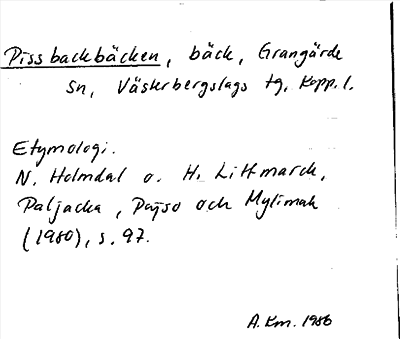 Pissbackbäcken, bäck, Grangärde
sn, Västerbergslags tg, Kopp. l.
Etymologi.
N. Holmdal o. H. Littmarck,
Paljacka, Pajso och Mylimak
(1980), s. 97.
A.Km. 1986